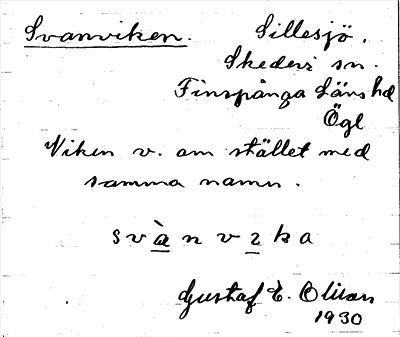 Svanviken. Sillesjö.
Skedevi sn.
Finspånga Läns hd
Ögl
Viken v. om stället med
samma namn.
svànvıka
Gustaf E. Olsson
1930